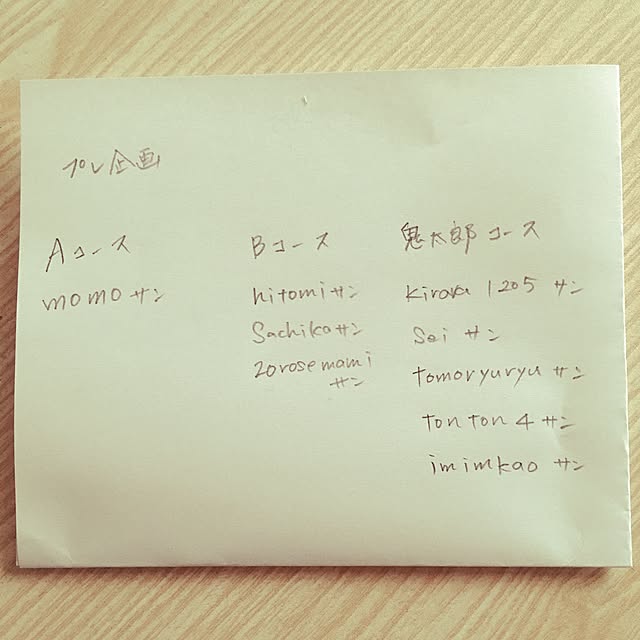 プレ企画
Aコース
momoサン
Bコース
hitomiサン
Sachikaサン
zorosemami
サン
鬼太郎コース
kirara1205サン
Seiサン
tomoryuryuサン
tonton4サン
imimkaoサン